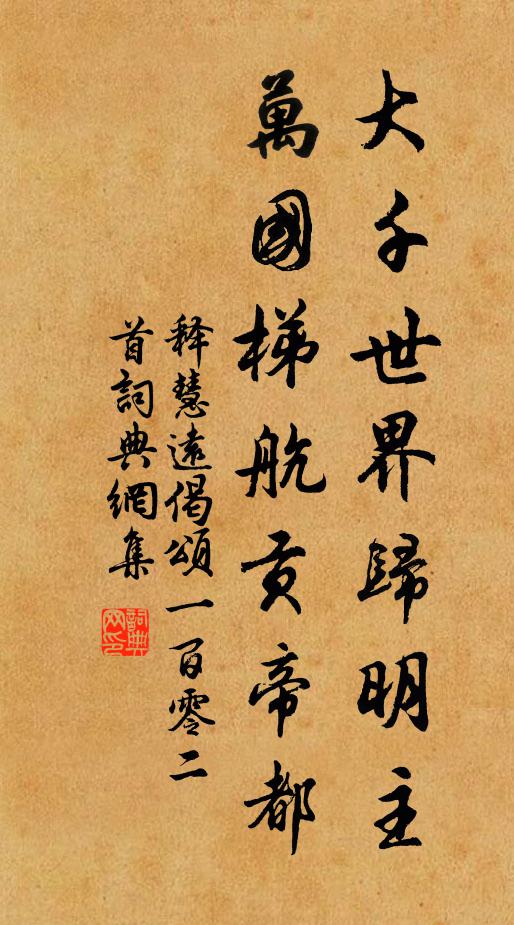 大千世界歸明主
萬國梯航貢帝都
释慧遠偈頌一百零二
首詞典網集
詞典
网印